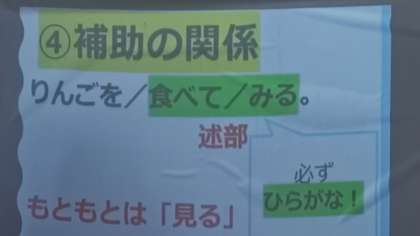 ④補助の関係
りんごを／食べて／みる。
述部
必ず
ひらがな！
もともとは「見る」